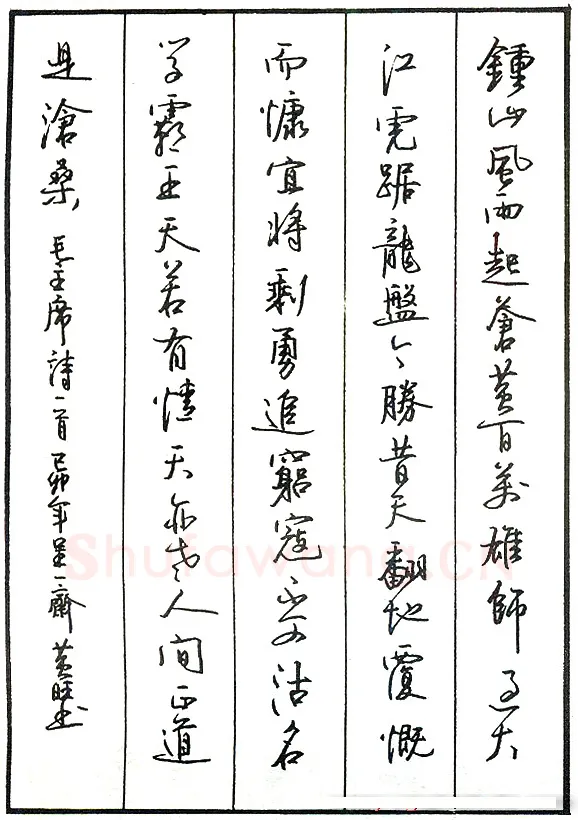 鍾山風雨起蒼黄百萬雄師过大
江虎踞龍盤今勝昔天翻地覆慨
而慷宜將剩勇追窮寇不可沽名
学霸王天若有情天亦老人间正道
是滄桑 毛主席詩一首 己卯年呈一齋 黄旺书
Shufawang.CN